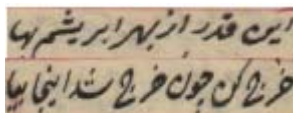 این قدر از بهر ابریشم بها
خرج کن چون خرج شد اینجا بیا